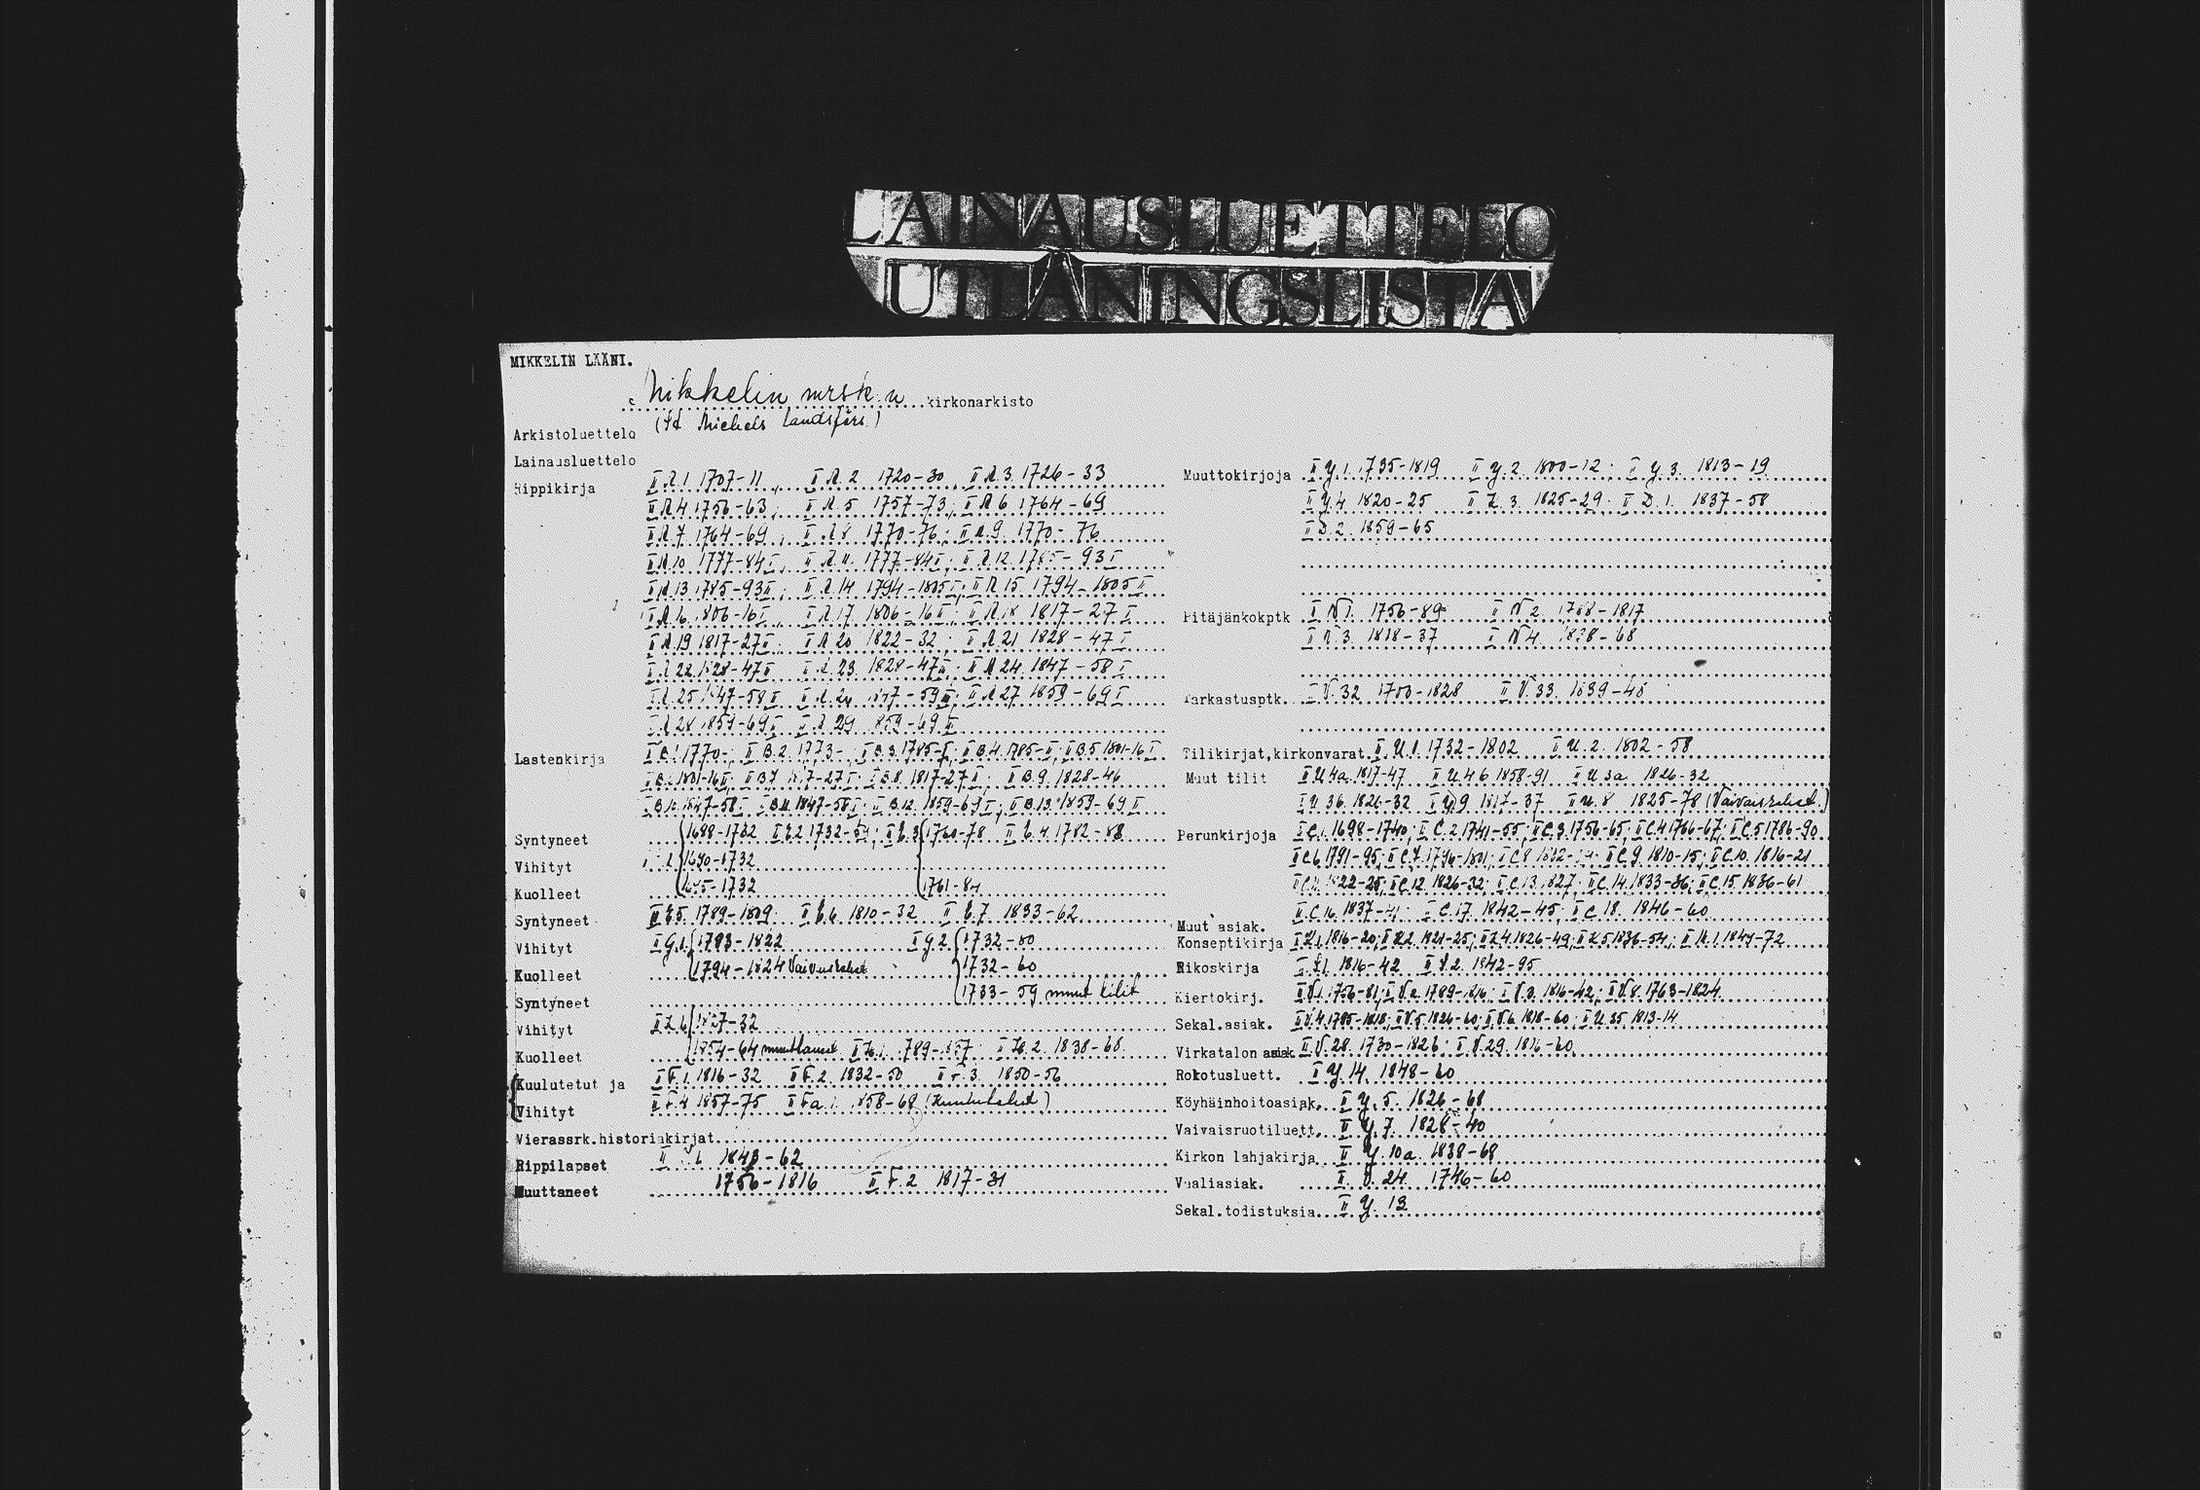 LAINAUSLUETTELO
UTLÅNINGSLISTA
MIKKELIN LÄÄNI.
Mikkelin mrsk:n kirkonarkisto
(St Michels Landsförs.)
Arkistoluettelo
Lainausluettelo
Rippikirja II A.1 1707-11, II A.2 1720-30, II A.3 1726-33
II A.4 1756-63; II A.5 1757-73; II A.6 1764-69
II A.7 1764-69, II A.8 1770-76; II A.9 1770-76
II A.10 1777-84 I, II A.11 1777-84 I; II A.12 1785-93 I
II A.13 1785-93 II; II A.14 1794-1805 I; II A.15 1794-1805 II
II A.16 1806-16 I, II A.17 1806-16 II; II A.18 1817-27 I
II A.19 1817-27 II II A.20 1822-32; II A.21 1828-47 I
II A.22 1828-47 II II A.23 1828-47 II; II A.24 1847-58 I
II A.25 1847-58 II II A.26 1847-59 III; II A.27 1859-69 I
II A.28 1859-69 II II A.29 1859-69 III
Lastenkirja II B.1 1770-; II B.2 1773-, II B.3 1785-I; II B.4 1785-II; II B.5 1801-16 I
1801-16 II; II B.7 1817-27 I; II B.8 1817-27 II; II B.9 1828-46
II B.10 1847-58 I II B.11 1847-58 II; II B.12 1859-69 I; II B.13 1859-69 II
Syntyneet 1688-1732 1732- 1760-78 1782-88
Vihityt 1690-1732
Kuolleet 1695-1732 1761-84
Syntyneet 1789-1809 1810-32 1833-62
Vihityt II G.1. 1793-1822 II G.2. 1732-80
Kuolleet 1794-1824 1732-60
Syntyneet 1733-59 muut tilit
Vihityt 1827-32
Kuolleet 1854-64 1838-68
Kuulutetut ja II F.1. 1816-32 II F.2. 1832-50 II F.3. 1850-56
Vihityt II F.4 1857-75 II Fa.1. 1858-68
Vierassrk.historiakirjat
Rippilapset 1843-62
Muuttaneet 1756-1816 II F.2 1817-31
Muuttokirjoja II Y.1. 1795-1819 II Y.2. 1800-12; II Y.3. 1813-19
II Y.4 1820-25 1825-29; II D.1. 1837-58
II D.2. 1859-65
Pitäjänkokptk II N 1. 1756-89 II N 2. 1788-1817
II N 3. 1818-37 II N 4. 1838-68
Tarkastusptk. II V.32 1700-1828 II V.33. 1839-48
Tilikirjat,kirkonvarat II U.1. 1732-1802 II U.2. 1802-58
Muut tilit II U 4a. 1817-47 II U.4b 1858-91 II U 3a 1826-32
II U 3b. 1826-32 1817-37 II U.8 1825-78
Perunkirjoja II C.1. 1698-1740; II C.2. 1741-55; II C.3. 1756-65; II C.4 1766-67; II C.5 1786-90
II C.6 1791-95; II C.7. 1796-1801; II C.8 II C.9. 1810-15; II C.10. 1816-21
1822-25; II C.12. 1826-32; II C.13. 1827; II C.14. 1833-36; II C.15. 1836-61
II C.16. 1837-41 II C.17. 1842-45; II C.18. 1846-60
Muut asiak.
Konseptikirja 1816-20; 1821-25; 1826-49; 1836-54; 1849-72
Rikoskirja 1816-42 1842-95
Kiertokirj. 1756-81; 1789-1816; 1816-42; II V.8. 1763-1824
Sekal.asiak. II V.4. 1785-1818; II V.5. 1826-60; II V.6. 1818-60; II U.35 1813-14
Virkatalon asiak II V.28. 1730-1826; II V.29. 1816-60
Rokotusluett. II Y 14. 1848-60
Köyhäinhoitoasiak. II Y.5. 1826-68
Vaivaisruotiluett. II Y.7. 1828-40
Kirkon lahjakirja II Y.10a. 1838-68
Vaaliasiak. II V.24. 1746-60
Sekal.todistuksia II Y. 13